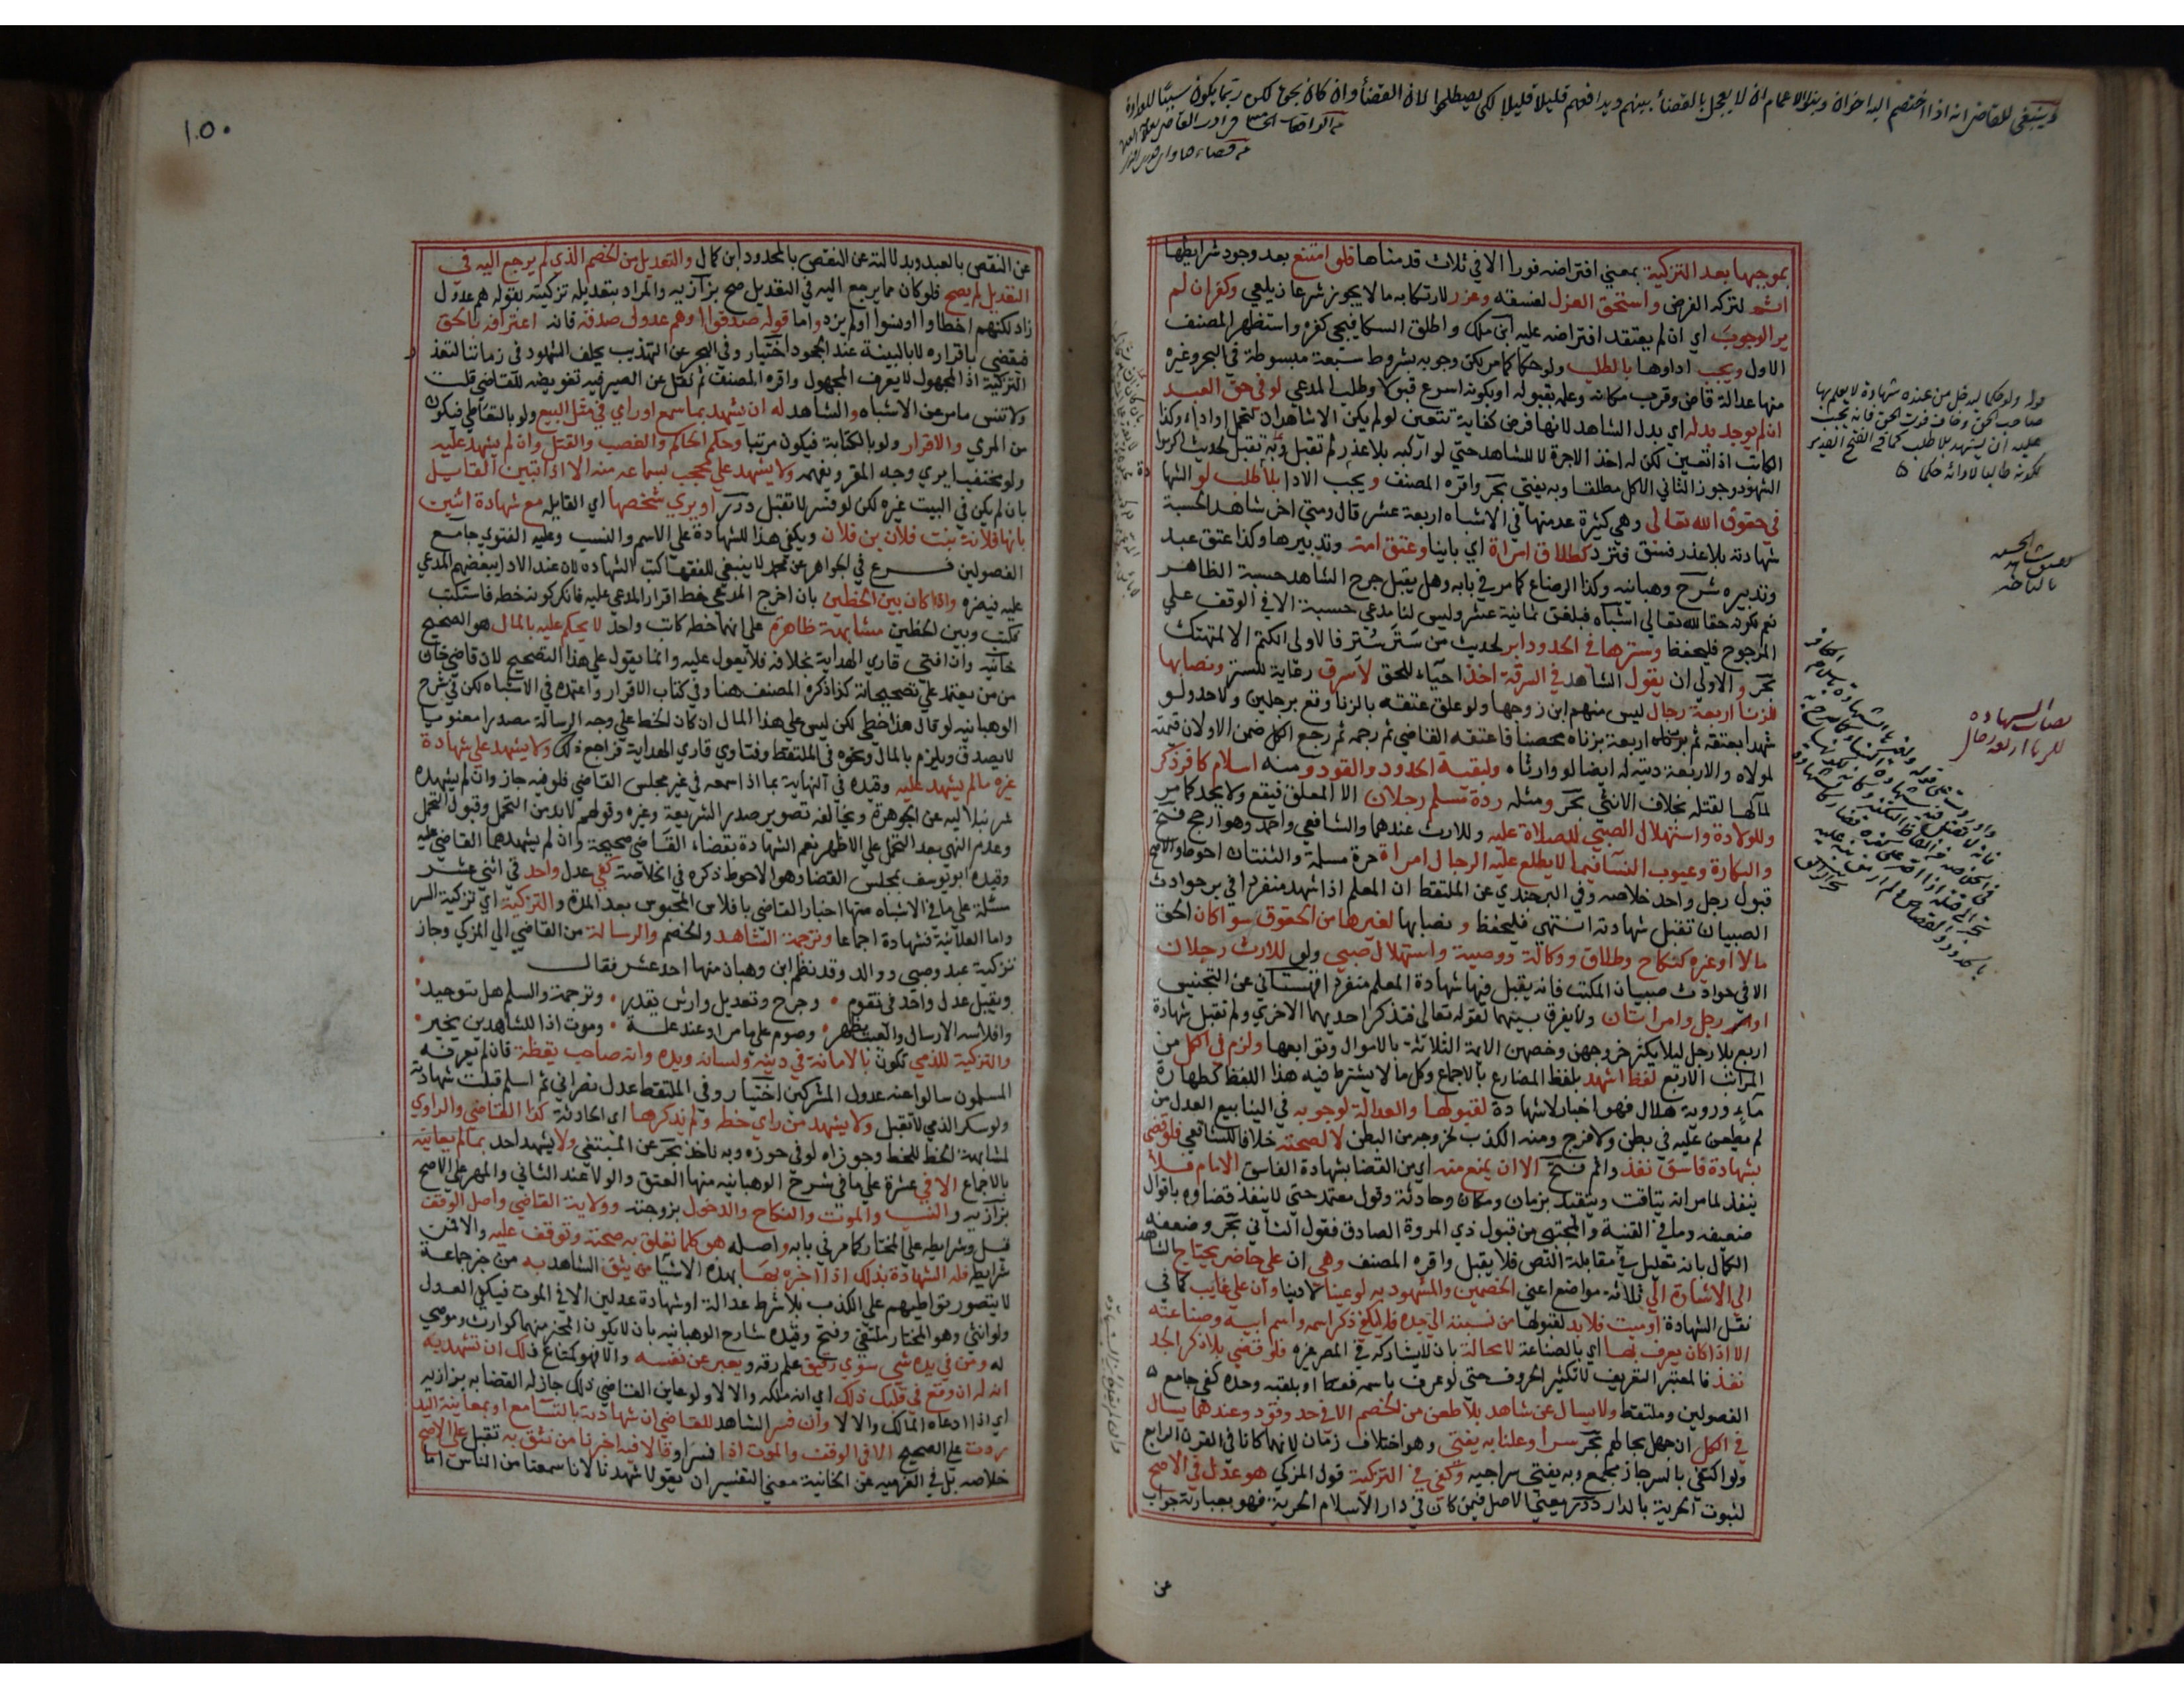 وينبغي للقاضي انه اذا اختصم اليه اخوان وبنو الاعمام ان لا يعجل بالقضأ بينهم ويدافعهم قليلا قليلا لكي يصطلحوا لان القضأ وان كان بحق لكن ربما يكون سببًا للعداوة
بموجبها بعد التزكية بمعني افتراضه فورا الا في ثلاث قدمناها فلو امتنع بعد وجود شرايطها
اثم لتركه الفرض واستحق العزل لفسقه وعزر لارتكابه ما لا يجوز شرعا زيلعي وكفر ان لم
ير الوجوب اي ان لم يعتقد افتراضه عليه ابن ملك واطلق الكافيجي كفره واستظهر المصنف
الاول ويجب اداوها بالطلب ولو حكما كما مر لكن وجوبه بشروط سبعة مبسوطة في البحر وغيره
منها عدالة قاض وقرب مكانه وعلمه بقبوله او بكونه اسرع قبولا وطلب المدعي لو في حق العبد
ان لم يوجد بدله اي بدل الشاهد لانها فرض كفاية تتعين لو لم يكن الا شاهدان لتحمل او اداء وكذا
الكاتب اذا تعين لكن له اخذ الاجرة لا للشاهد حتي لو اركبه بلا عذر لم تقبل وبه تقبل لحديث اكرموا
الشهود وجوز الثاني الاكل مطلقا وبه يفتي بحر واقره المصنف ويجب الادا بلا طلب لو الشهادة
في حقوق الله تعالي وهي كثيرة عد منها في الاشباه اربعة عشر قال ومتي اخر شاهد الحسبة
شهادته بلا عذر فسق فترد كطلاق امراة اي باينا وعتق امة وتدبيرها وكذا عتق عبد
وتدبيره شرح وهبانيه وكذا الرضاع كما مر في بابه وهل يقبل جرح الشاهد حسبة الظاهر
نعم لكونه حقا لله تعالي اشباه فبلغت ثمانية عشر وليس لنا مدعي حسبة الا في الوقف علي
المرجوح فليحفظ وسترها في الحدود ابر لحديث من سَتر سُتر فالاولي الكتم الا لمتهتك
بحر والاولي ان يقول الشاهد في السرقة اخذ احياء للحق لا سرق رعاية للستر ونصابها
للزنا اربعة رجال ليس منهم ابن زوجها ولو علق عتقه بالزنا وقع برجلين ولا حد ولو
شهدا بعتقه ثم بزناه اربعة بزناه محصنا فاعتقه القاضي ثم رجمه ثم رجع الكل ضمن الاولان قيمته
لمولاه والاربعة ديته له ايضا لو وارثاه ولبقية الحدود والقود ومنه اسلام كافر ذكر
لمآلها لقتله بخلاف الانثي بحر ومثله ردة مسلم رجلان الا المعلق فيقع ولا يحد كما مر
وللولادة واستهلال الصبي للصلاة عليه وللارث عندهما والشافعي واحمد وهو ارجح فتح
والبكارة وعيوب النسآ فيما لا يطلع عليه الرجال امراة حرة مسلمة والثنتان احوط والاصح
قبول رجل واحد خلاصه وفي البرجندي عن الملتقط ان المعلم اذا شهد منفردا في حوادث
الصبيان تقبل شهادته انتهي فليحفظ ونصابها لغيرها من الحقوق سوا كان الحق
مالا او غيره كنكاح وطلاق ووكالة ووصية واستهلال صبي ولو للارث رجلان
الا في حوادث صبيان المكتب فانه يقبل فيها شهادة المعلم منفردا قهستاني عن التجنيس
او رجل وامراتان ولا يفرق بينهما لقوله تعالي فتذكر احديهما الاخري ولم تقبل شهادة
اربع بلا رجل ليلا يكثر خروجهن وخصهن الايمة الثلاثة بالاموال وتوابعها ولزم في الكل من
المراتب الاربع لفظ اشهد بلفظ المضارع بالاجماع وكل ما لا يشترط فيه هذا اللفظ كطهارة
مآء وروية هلال فهو اخبار لا شهادة لقبولها والعدالة لوجوبه في الينابيع العدل من
لم يطعن عليه في بطن ولا فرج ومنه الكذب لخروجه من البطن لا لصحته خلافا للشافعي فلو قضي
بشهادة فاسق نفذ واثم فتح الا ان يمنع منه اي من القضا بشهادة الفاسق الامام فلا
ينفذ لما مر انه يتاقت ويتقيد بزمان ومكان وحادثة وقول معتمد حتي لا ينفذ قضاوه باقوال
ضعيفه وما في القنية والمجتبي من قبول ذي المروة الصادق فقول الثاني بحر وضعفه
الكمال بانه تعليل في مقابلة النص فلا يقبل واقره المصنف وهي ان علي حاضر يحتاج الشاهد
الي الاشارة الي ثلاثة مواضع اعني الخصمين والمشهود به لو عينا لا دينا وان علي غايب كما في
نقل الشهادة او ميت فلا بد لقبولها من نسبته الي جده فلا يكفي ذكر اسمه واسم ابيه وصناعته
الا اذا كان يعرف بها اي بالصناعة لا محالة بان لا يشاركه في المصر غيره فلو قضي بلا ذكر الجد
نفذ فالمعتبر التعريف لا تكثير الحروف حتي لو عرف باسمه فقط او بلقبه وحده كفي جامع
الفصولين وملتقط ولا يسال عن شاهد بلا طعن من الخصم الا في حد وقود وعندهما يسال
في الكل ان جهل بحالهم بحر سرا وعلنا به يفتي وهو اختلاف زمان لانهما كانا في القرن الرابع
ولو اكتفي بالسر جاز مجمع وبه يفتي سراجيه وكفي في التزكية قول المزكي هو عدل في الاصح
لثبوت الحرية بالدار درر يعني الاصل فيمن كان في دار الاسلام الحرية فهو بعبارته جواب
عن
قوله ولو حكما ليدخل من عنده شهادة لا يعلم بها
صاحب الحق وخاف فوت الحق فانه يجب
عليه ان يشهد بلا طلب كما في الفتح القدير
لكونه طالبا لادائه حكما
نصاب الشهاده
للزنا اربعة رجال
١٥٠
عن النقض بالعبد وبدلالته عن النقض بالمحدود ابن كمال والتعديل من الخصم الذي لم يرجع اليه في
التعديل لم يصح فلو كان مما يرجع اليه في التعديل صح بزازيه والمراد بتعديله تزكيته بقوله هم عدول
زاد لكنهم اخطاوا او نسوا او لم يزد واما قوله صدقوا او هم عدول صدقة فانه اعتراف بالحق
فيقضي باقراره لا بالبينة عند الجحود اختيار وفي البحر عن التهذيب يحلف الشهود في زماننا لتعذر
التزكية اذ المجهول لا يعرف المجهول واقره المصنف ثم نقل عن الصيرفيه تفويضه للقاضي قلت
ولا تنس ما مر عن الاشباه والشاهد له ان يشهد بما سمع او راي في مثل البيع ولو بالتعاطي فيكون
من المري والاقرار ولو بالكتابة فيكون مرتيا وحكم الحاكم والغصب والقتل وان لم يشهد عليه
ولو مختفيا يري وجه المقر ويفهمه ولا يشهد علي محجب بسماعه منه الا اذا تبين القايل
بان لم يكن في البيت غيره لكن لو فسر لا تقبل درر او يري شخصها اي القايله مع شهادة اثنين
بانها فلانة بنت فلان بن فلان ويكفي هذا للشهادة علي الاسم والنسب وعليه الفتوي جامع
الفصولين فرع في الجواهر عن محمد لا ينبغي للفقهآ كتب الشهاده لان عند الادا يبغضهم المدعي
عليه فيضره واذا كان بين الخطين بان اخرج المدعي خط اقرار المدعي عليه فانكر كونه خطه فاستكتب
فكتب وبين الخطين مشابهة ظاهرة علي انهما خط كاتب واحد لا يحكم عليه بالمال هو الصحيح
خانيه وان افتي قاري الهداية بخلافه فلا يعول عليه وانما يعول علي هذا التصحيح لان قاضي خان
من من يعتمد علي تصحيحاته كذا ذكره المصنف هنا وفي كتاب الاقرار واعتمده في الاشباه لكن في شرح
الوهبانيه لو قال هذا خطي لكن ليس علي هذا المال ان كان الخط علي وجه الرسالة مصدرا معنونا
لا يصدق ويلزم بالمال ونحوه في الملتقط وفتاوي قاري الهداية فراجع ذلك ولا يشهد علي شهادة
غيره مالم يشهد عليه وقيده في النهاية بما اذا سمعه في غير مجلس القاضي فلو فيه جاز وان لم يشهده
شرنبلاليه عن الجوهرة ويخالفه تصوير صدر الشريعة وغيره وقولهم لا بد من التحمل وقبول التحمل
وعدم النهي بعد التحمل علي الاظهر نعم الشهادة بقضاء القاضي صحيحة وان لم يشهدهما القاضي عليه
وقيده ابو يوسف بمجلس القضا وهو الاحوط ذكره في الخلاصة كفي عدل واحد في اثني عشر
مسئلة علي ما في الاشباه منها اخبار القاضي بافلاس المحبوس بعد المدة والتزكية اي تزكية السر
واما العلانية فشهادة اجماعا وترجمة الشاهد والخصم والرسالة من القاضي الي المزكي وجاز
تزكية عبد وصبي ووالد وقد نظم ابن وهبان منها احد عشر فقال
ويقبل عدل واحد في تقوم وجرح وتعديل وارش يقدر وترجمة والسلم هل تجيد
وافلاسه الارسال والعيب يظهر وصوم علي ما مر او عند علة وموت اذا للشاهدين يخبر
والتزكية للذمي تكون بالامانة في دينه ولسانه ويده وانه صاحب يقظة فان لم يعرفه
المسلمون سالوا عنه عدول المشركين اختيار وفي الملتقط عدل نصراني ثم اسلم قبلت شهادته
ولو سكر الذمي لا تقبل ولا يشهد من راي خطه ولم يذكرها اي الحادثة كذا القاضي والراوي
لمشابهة الخط للخط وجوزاه لو في حوزه وبه ناخذ بحر عن المبتغي ولا يشهد احد بما لم يعاينه
بالاجماع الا في عشرة علي ما في شرح الوهبانيه منها العتق والولا عند الثاني والمهر علي الاصح
بزازيه والنسب والموت والنكاح والدخول بزوجته وولاية القاضي واصل الوقف
قيل وشرايطه علي المختار كما مر في بابه واصله هو كلما تعلق به صحته وتوقف عليه والا فمن
شرايطه فله الشهادة بذلك اذا اخبره بها بهذه الاشيا من يثق الشاهد به من خبر جماعة
لا يتصور تواطيهم علي الكذب بلا شرط عدالة او شهادة عدلين الا في الموت فيكفي العدل
ولو انثي وهو المختار ملتقي وفتح وقيده شارح الوهبانيه بان لا يكون المخبر متهما كوارث وموصي
له ومن في يده شي سوي رقيق علم رقه ويعبر عن نفسه والا فهو كمتاع فلك ان تشهد به
انه له ان وقع في قلبك ذلك اي انه ملكه والا لا ولو عاين القاضي ذلك جاز له القضا به بزازيه
اي اذا ادعاه المالك والا لا وان فسر الشاهد للقاضي ان شهادته بالتسامع او بمعاينة اليد
ردت علي الصحيح الا في الوقف والموت اذا فسرا وقالا فيه اخبرنا من نثق به تقبل علي الاصح
خلاصه بل في العزميه عن الخانية معني التفسير ان يقولا شهدنا لانا سمعنا من الناس اما